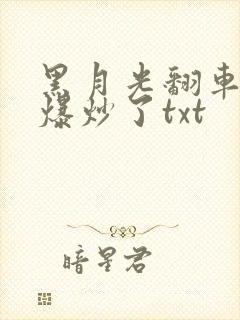 黑月光翻車
爆炒了txt
暗星君